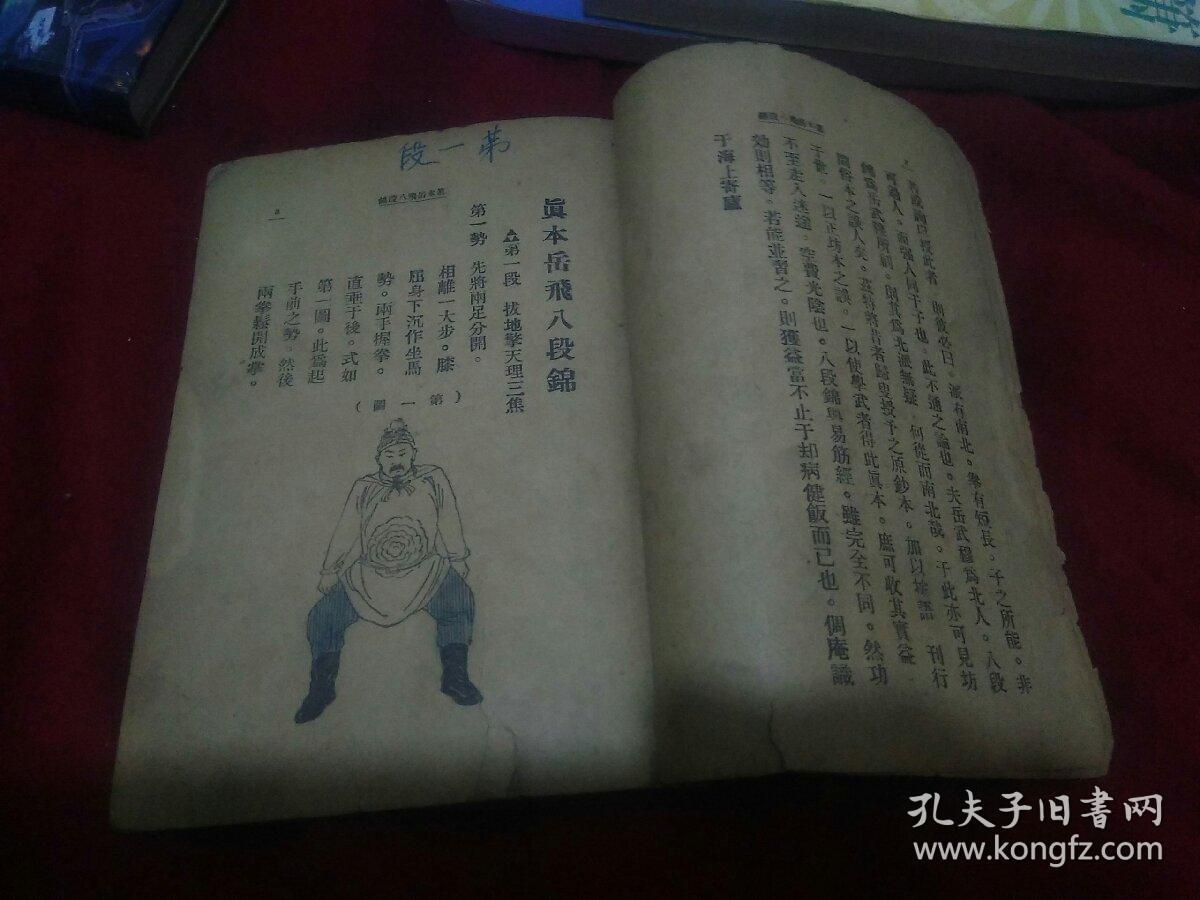 而強人同于予也。此不通之論也。夫岳武穆爲北人。八段
錦爲岳武穆所創。則其爲北派無疑。何從而南北哉。于此亦可見坊
間俗本之誤人矣。茲特將昔者歸叟授予之原鈔本。加以按語 刊行
于世。一以正坊本之誤。一以使學武者得此眞本。庶可收其實益
不至走入迷途。空費光陰也。八段錦與易筋經。雖完全不同。然功
効則相等。若能並習之。則獲益當不止于却病健飯而已也。倜庵識
于海上寄廬
第一段
眞本岳飛八段錦
眞本岳飛八段錦
▲第一段 拔地擎天理三焦
第一勢 先將兩足分開。
相離一大步。膝
屈身下沉作坐馬
勢。兩手握拳。
直垂于後。式如
第一圖。此爲起
手前之勢。然後
兩拳鬆開成掌。
(第一圖)
孔夫子旧书网
www.kongfz.com